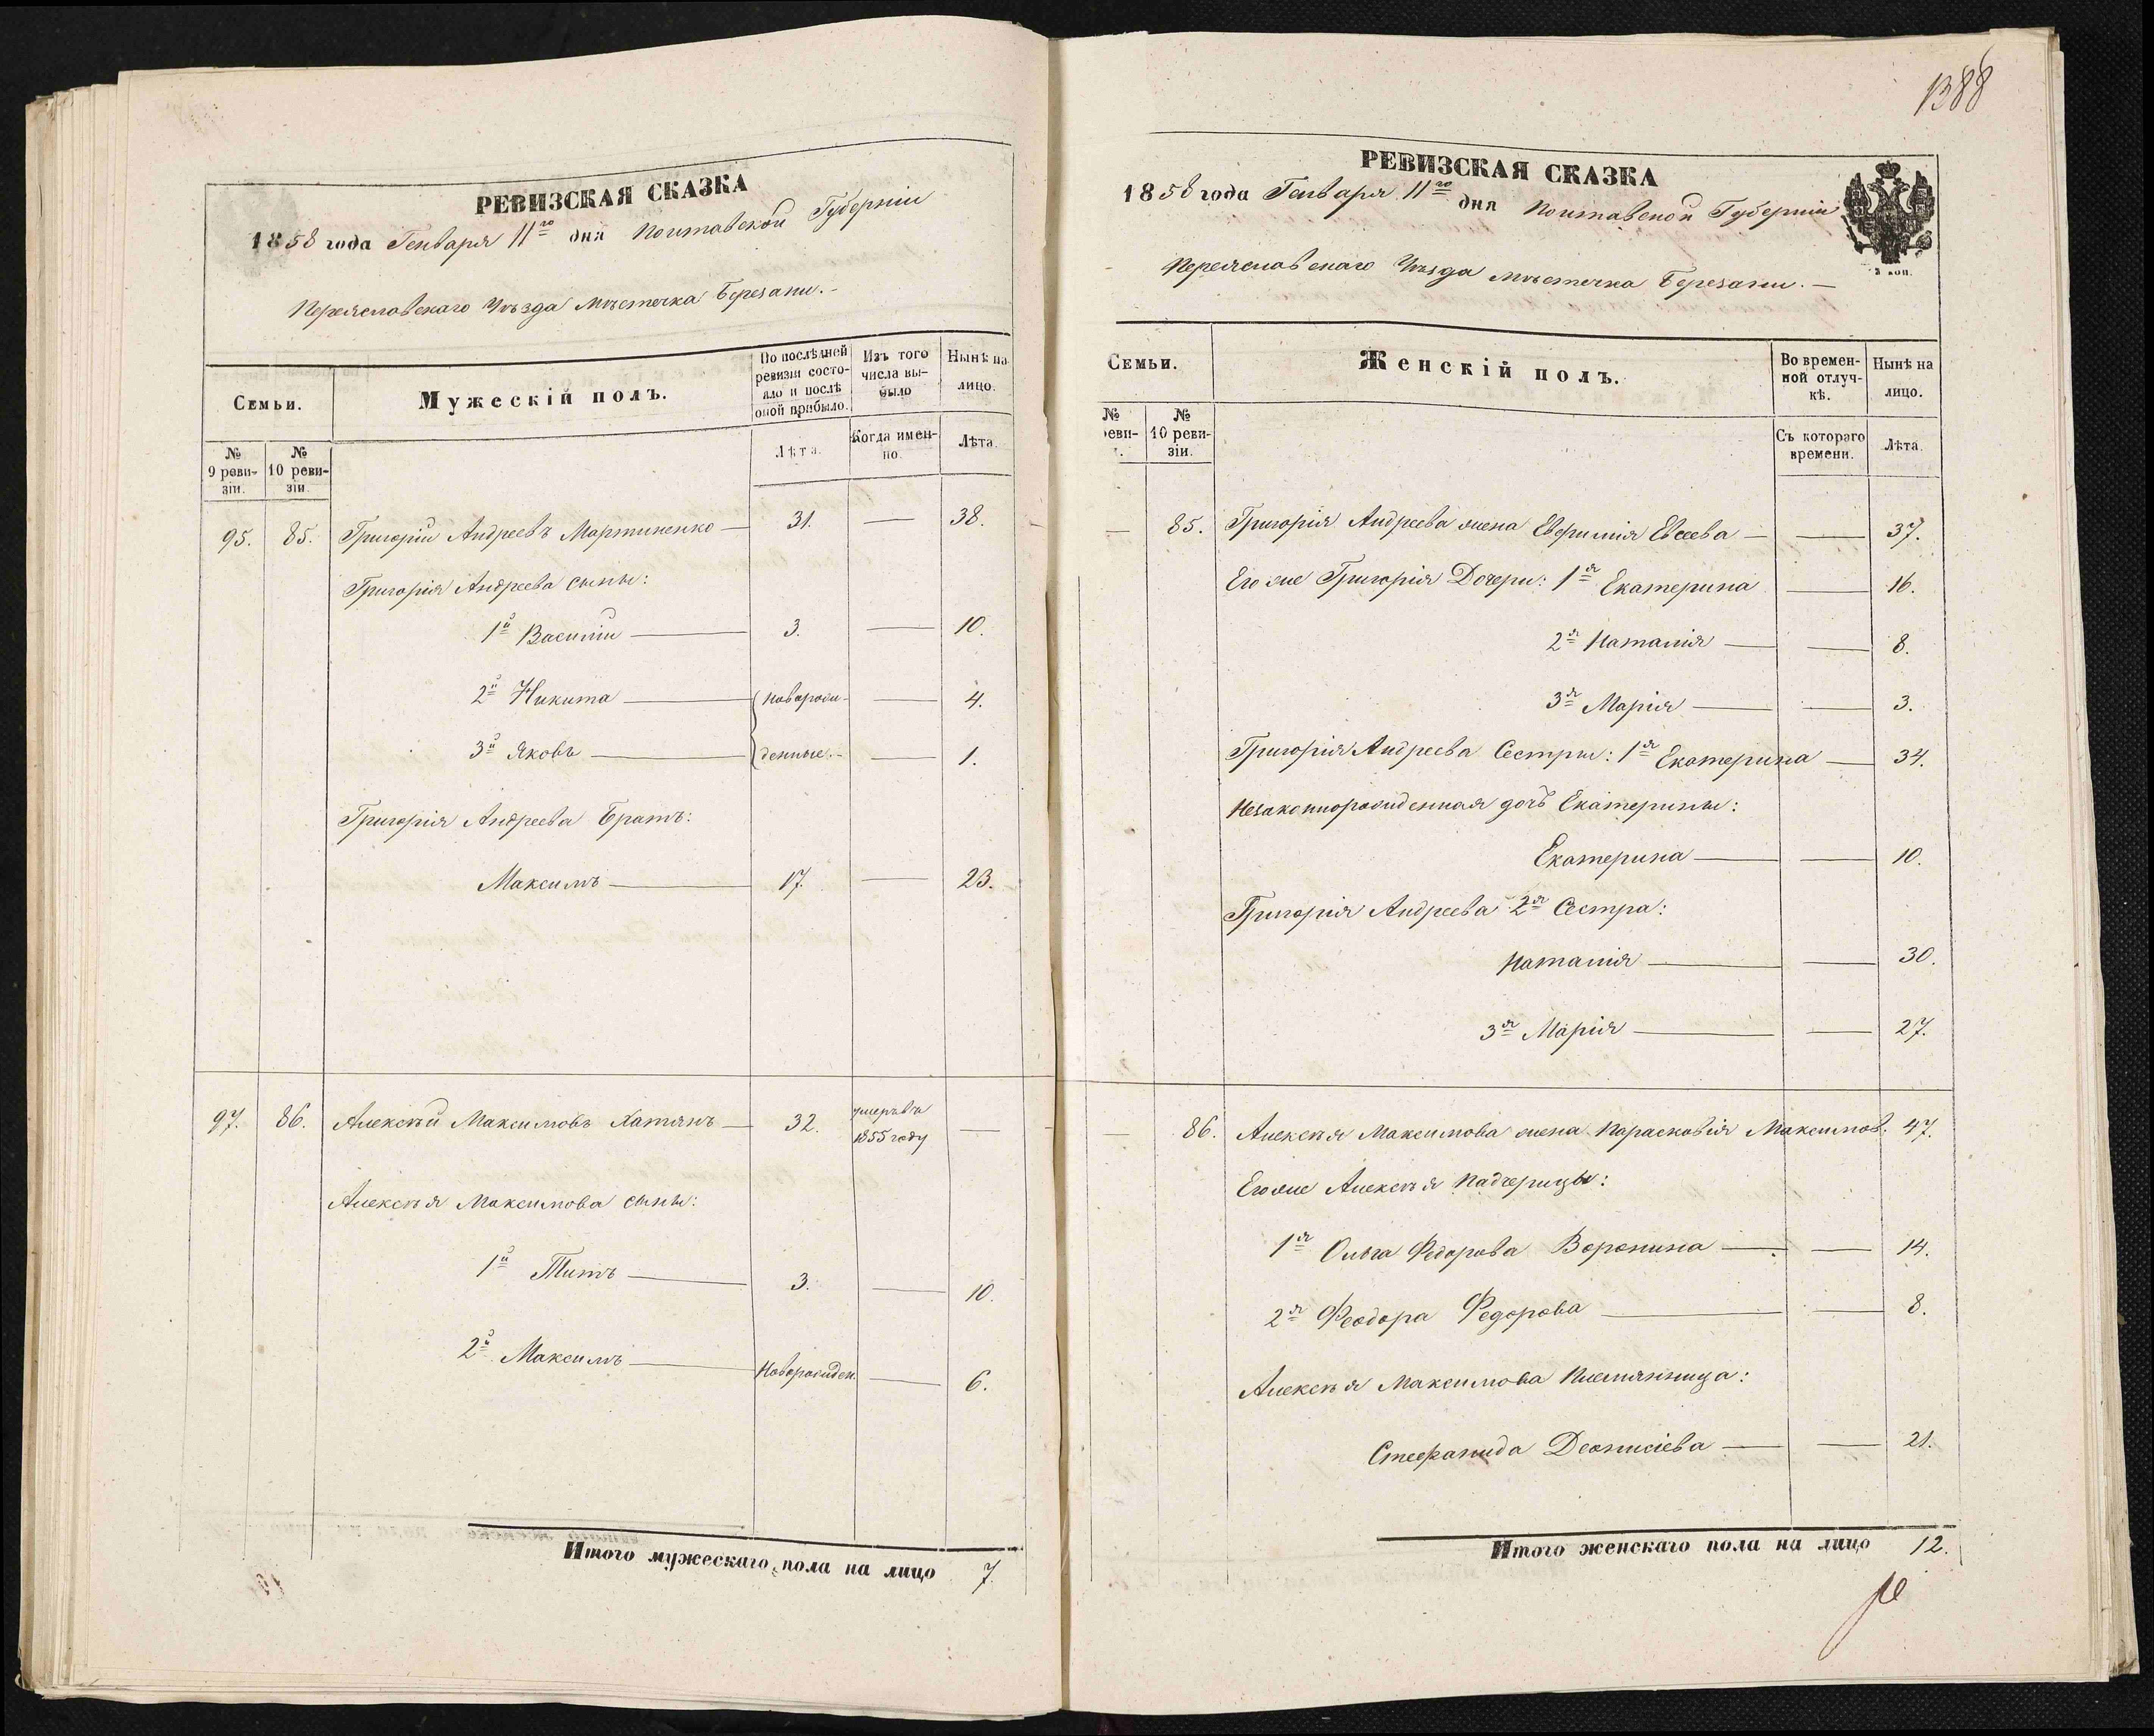 РЕВИЗСКАЯ СКАЗКА
1858 года Генваря 11го дня Полтавской Губерніи
Переяславскаго Уѣзда Мѣстечка Березани. —
Семьи.
Мужескій полъ.
По послѣдней ревизіи состояло и послѣ оной прибыло.
Изъ того числа выбыло
Нынѣ на лицо.
№ 9 ревизіи.
№ 10 ревизіи.
Лѣта.
Когда именно.
Лѣта.
95. 85. Григорій Андреевъ Мартиненко — 31. — 38.
Григорія Андреева сыны:
1й Василій — 3. — 10.
2й Никита — новорож- — 4.
3й Яковъ — денные. — — 1.
Григорія Андреева Братъ:
Максимъ — 17. — 23.
97. 86. Алексѣй Максимовъ Хатянъ — 32. умеръ въ 1855 году —
Алексѣя Максимова сыны:
1й Титъ — 3. — 10.
2й Максимъ — Новорожден. — 6.
Итого мужескаго пола на лицо 7
1388
РЕВИЗСКАЯ СКАЗКА
1858 года Генваря 11го дня Полтавской Губерніи
Переяславскаго Уѣзда Мѣстечка Березани. —
3 коп.
Семьи.
Женскій полъ.
Во временной отлучкѣ.
Нынѣ на лицо.
№ реви-
№ 10 ревизіи.
Съ котораго времени.
Лѣта.
— 85. Григорія Андреева жена Евфимія Евсеева — — 37.
Его же Григорія Дочери: 1я Екатерина — 16.
2я Наталія — — 8.
3я Марія — — 3.
Григорія Андреева Сестры: 1я Екатерина — 34.
Незаконнорожденная дочь Екатерины:
Екатерина — — 10.
Григорія Андреева 2я Сестра:
Наталія — — 30.
3я Марія — — 27.
— 86. Алексѣя Максимова жена Парасковія Максимов: 47.
Его же Алексѣя Падчерицы:
1я Ольга Федорова Воронина — — 14.
2я Феодора Федорова — — 8.
Алексѣя Максимова Племянница:
Стефанида Деонисіева — — 21.
Итого женскаго пола на лицо 12.